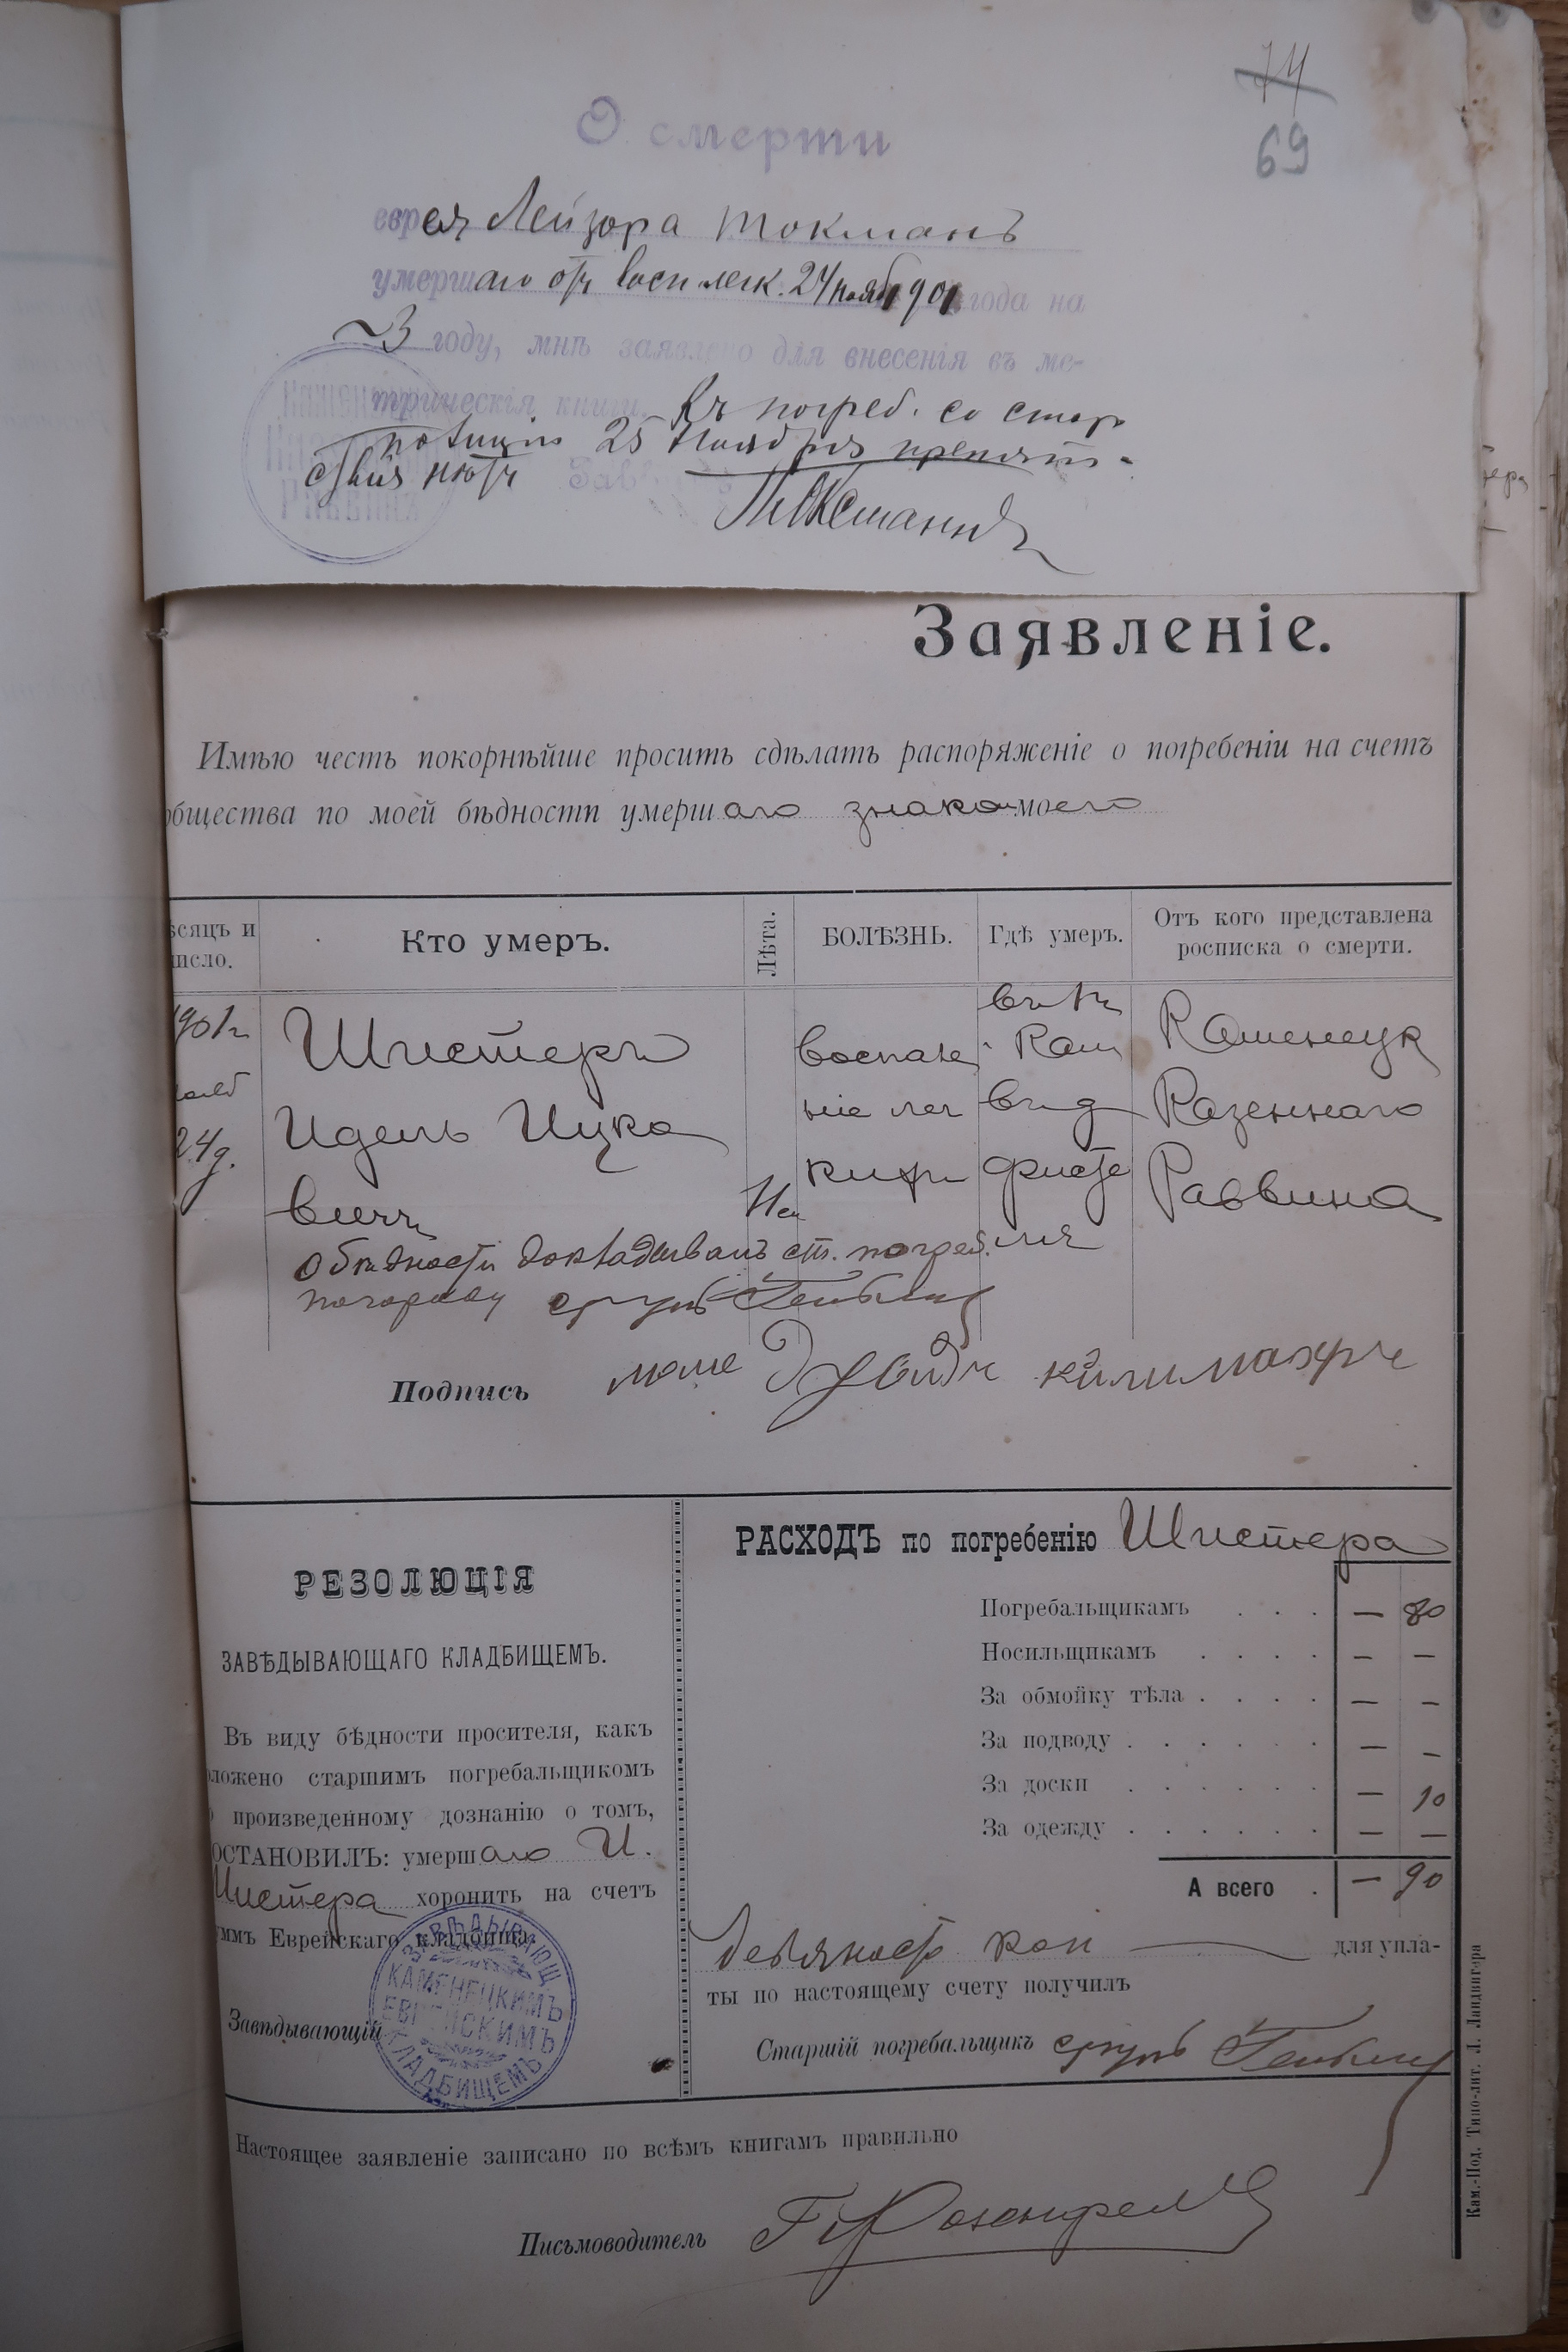 74
69
О смерти
еврея Лейзора Токманъ
умершаго отъ восп легк. 24 нояб 1901 года на
3 году, мнѣ заявлено для внесенія въ ме-
трическія книги. Къ погреб. со стор
полиціи 25 Ноября препят-
ствія нѣтъ
Заявленіе.
Имѣю честь покорнѣйше просить сдѣлать распоряженіе о погребеніи на счетъ
общества по моей бѣдности умершаго знакомого
ѣсяцъ и
число.
Кто умеръ.
Лѣта.
БОЛѢЗНЬ.
Гдѣ умеръ.
Отъ кого представлена
росписка о смерти.
1901 г
нояб
24 д.
Шистеръ
Идель Ицко
вичъ
воспале
ніе лег
кихъ
въ г
Кам
въ д
Каменецк
Казеннаго
Раввина
О бѣдности докладывалъ ст. погреб.
Сруль
Подпись
РЕЗОЛЮЦІЯ
ЗАВѢДЫВАЮЩАГО КЛАДБИЩЕМЪ.
Въ виду бѣдности просителя, какъ
ложено старшимъ погребальщикомъ
о произведенному дознанію о томъ,
ОСТАНОВИЛЪ: умершаго И.
Шистера хоронить на счетъ
уммъ Еврейскаго кладбища.
Завѣдывающій
ЗАВѢДЫВАЮЩ.
КАМЕНЕЦКИМЪ
ЕВРЕЙСКИМЪ
КЛАДБИЩЕМЪ
РАСХОДЪ по погребенію Шистера
Погребальщикамъ . . . — 80
Носильщикамъ . . . . — —
За обмойку тѣла . . . . — —
За подводу . . . . . . — —
За доски . . . . . . — 10
За одежду . . . . . . — —
А всего . — 90
девяност коп для упла-
ты по настоящему счету получилъ
Старшій погребальщикъ Сруль
Настоящее заявленіе записано по всѣмъ книгамъ правильно
Письмоводитель Розенфельд
Кам.-Под. Типо-лит. Л. Ландвигера